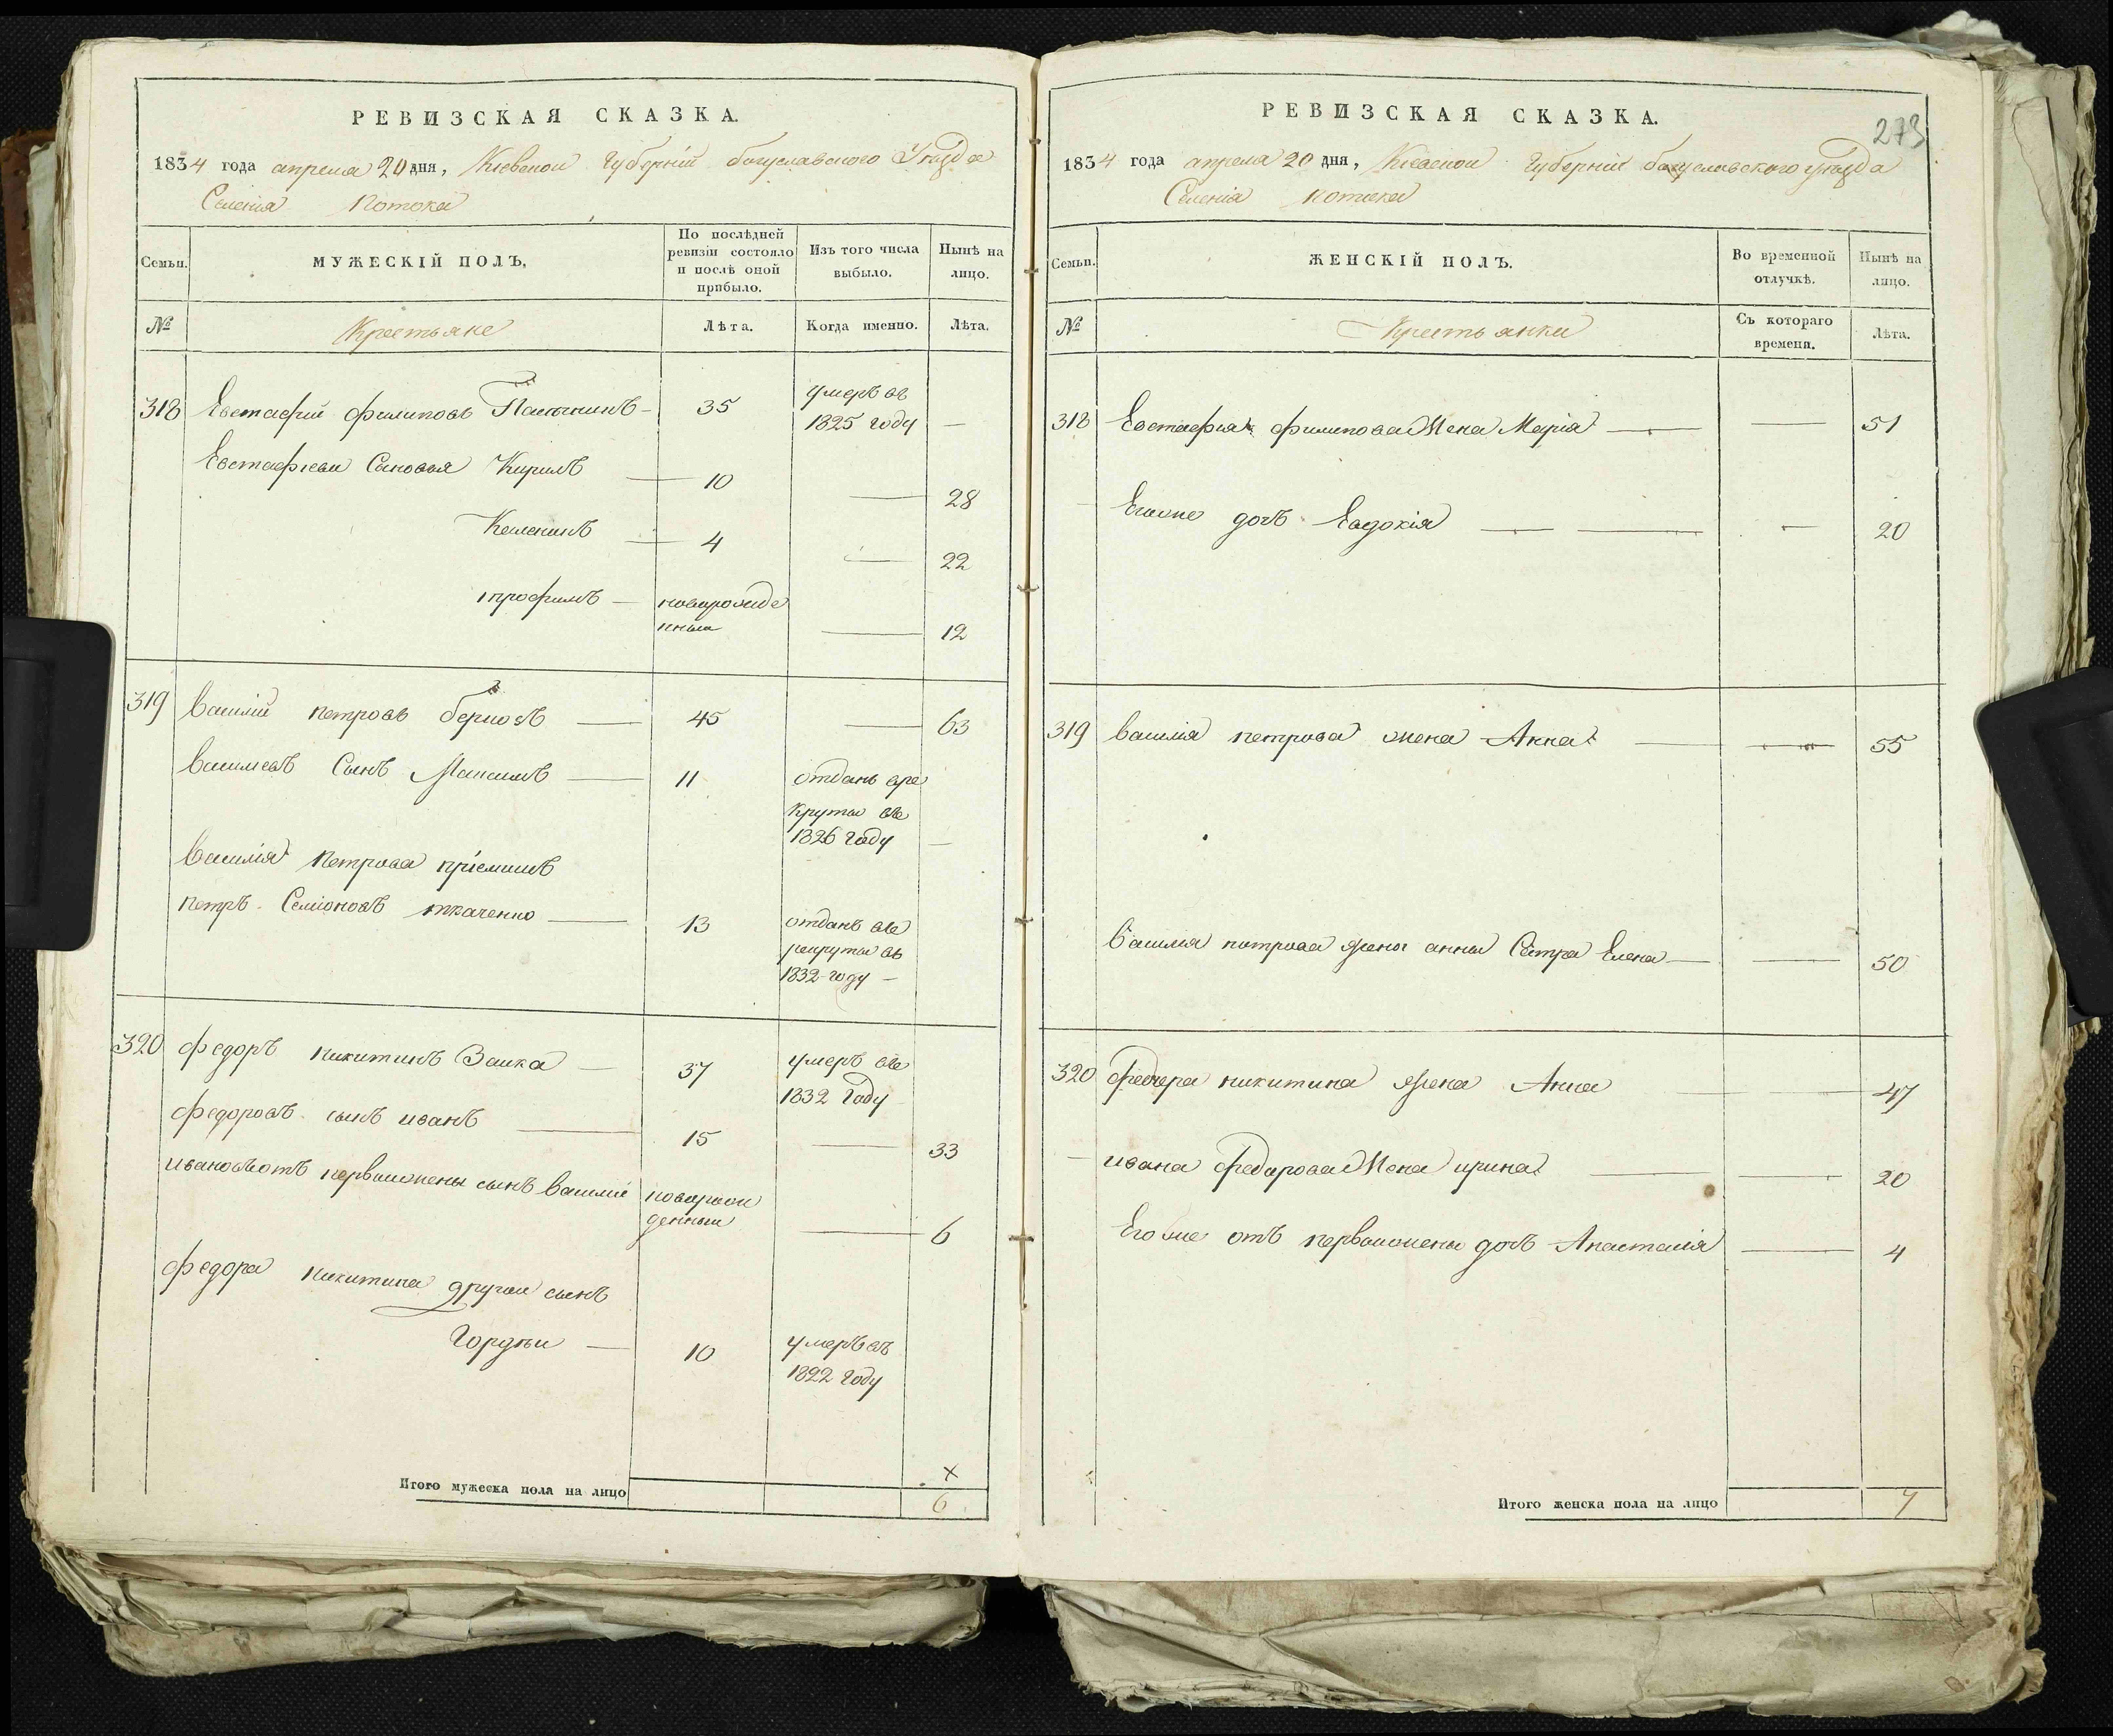 РЕВИЗСКАЯ СКАЗКА.
1834 года апреля 20 дня, Кіевской Губерніи богуславского Уѣзда
Селенія Потока
Семьи.
МУЖЕСКІЙ ПОЛЪ,
По послѣдней ревизіи состояло и послѣ оной прибыло.
Изъ того числа выбыло.
Нынѣ на лицо.
№
Крестьяне
Лѣта.
Когда именно.
Лѣта.
318 Евстафій филиповъ 35 умеръ въ
1825 году —
Евстафіеви Сыновья Кирилъ — 10 — 28
4 — 22
трофимъ — новорожде
нный — 12
319 Василій петровъ — 45 — 63
Васильевъ Сынъ Максимъ — 11 отданъ вре
круты въ
1826 году —
Василія Петрова пріемышъ
петръ Семіоновъ ткаченко — 13 отданъ въ
рекруты въ
1832 году —
320 федоръ никитинъ Заика — 37 умеръ въ
1832 Году
федоровъ сынъ иванъ — 15 — 33
ивановъ отъ первойжены сынъ василій новорож
денный — 6
федора никитина другой сынъ
Гордѣй — 10 умеръ въ
1822 году
Итого мужеска пола на лицо
х
6
РЕВИЗСКАЯ СКАЗКА.
273
1834 года апреля 20 дня, Кіевской Губерніи богуславского уѣзда
Селенія потока
Семьи.
ЖЕНСКІЙ ПОЛЪ.
Во временной отлучкѣ.
Нынѣ на лицо.
№
Крестьянки
Съ котораго времени.
Лѣта.
318 Евстафія филипова Жена Марія — — 51
Егоже дочъ Евдокія — — — 20
319 василія петрова жена Анна — — 55
Василія петрова жены анны Сестра Елена — — 50
320 Федора никитина жена Анна — 47
ивана Федорова Жена ирина — — 20
Егоже отъ первойжены дочъ Анастасія — 4
Итого женска пола на лицо
7